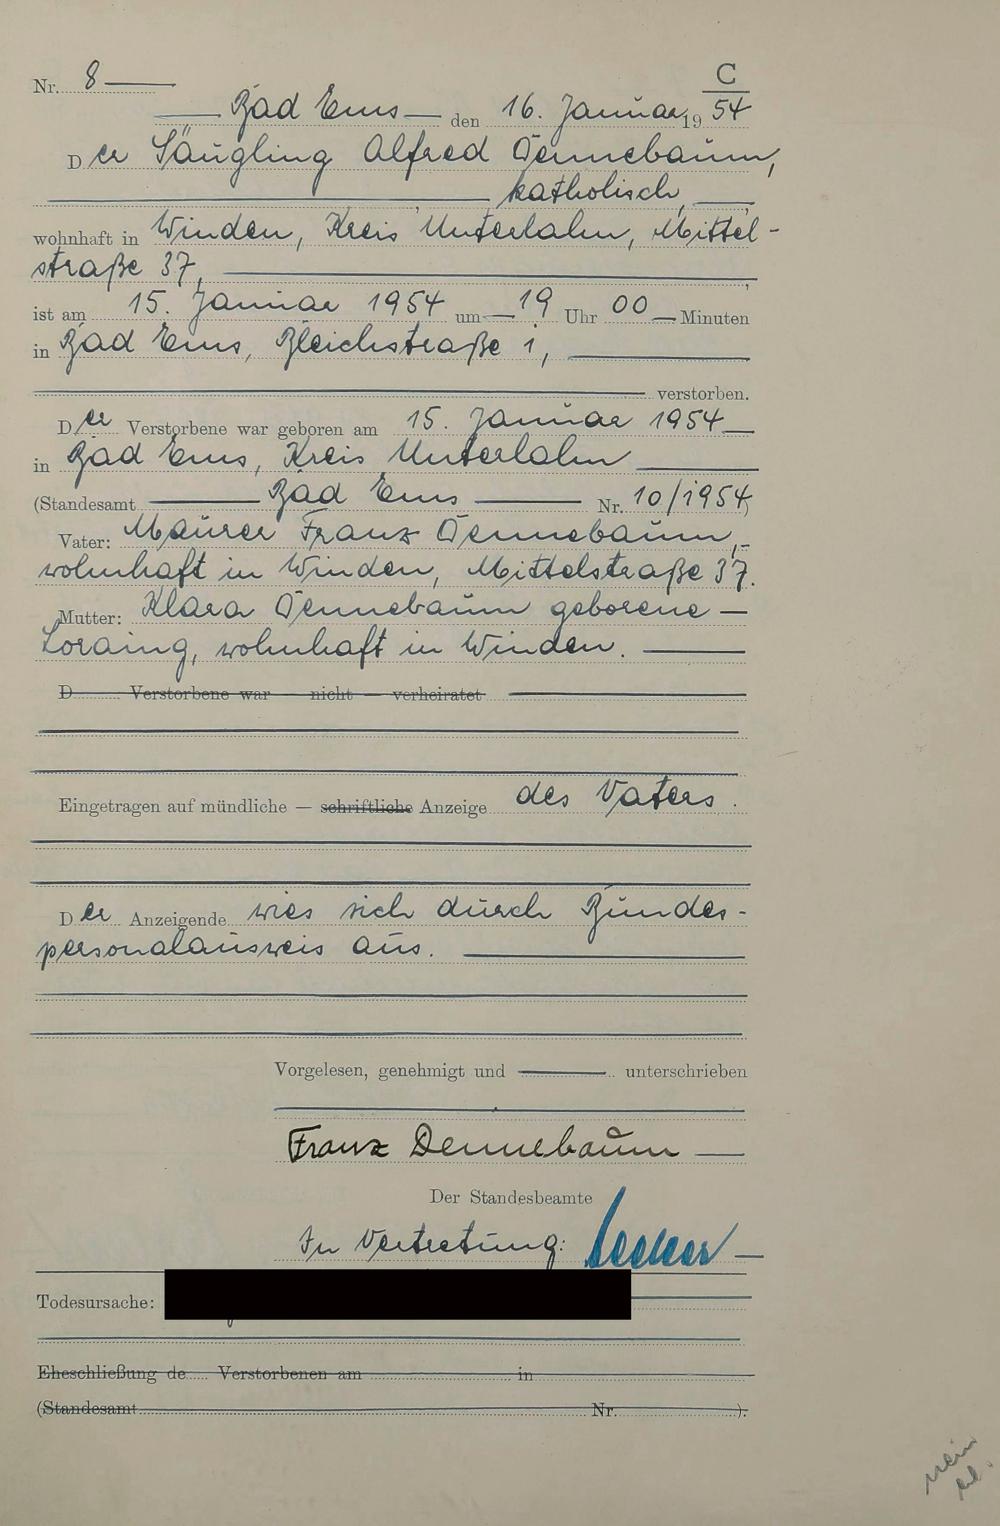 C
Nr. 8
Bad Ems den 16. Januar 19 54
Der Säugling Alfred Dennebaum,
katholisch,
wohnhaft in Winden, Kreis Unterlahn, Mittel-
straße 37,
ist am 15. Januar 1954 um 19 Uhr 00 Minuten
in Bad Ems, Bleichstraße 1,
verstorben.
Der Verstorbene war geboren am 15. Januar 1954
in Bad Ems, Kreis Unterlahn
(Standesamt Bad Ems Nr. 10/1954)
Vater: Maurer Franz Dennebaum,
wohnhaft in Winden, Mittelstraße 37.
Mutter: Klara Dennebaum geborene
Loraing, wohnhaft in Winden.
D Verstorbene war — nicht — verheiratet
Eingetragen auf mündliche — schriftliche Anzeige des Vaters.
Der Anzeigende wies sich durch Bundes-
personalausweis aus.
Vorgelesen, genehmigt und unterschrieben
Franz Dennebaum
Der Standesbeamte
In Vertretung:
Todesursache:
Eheschließung de Verstorbenen am in
(Standesamt Nr. ).